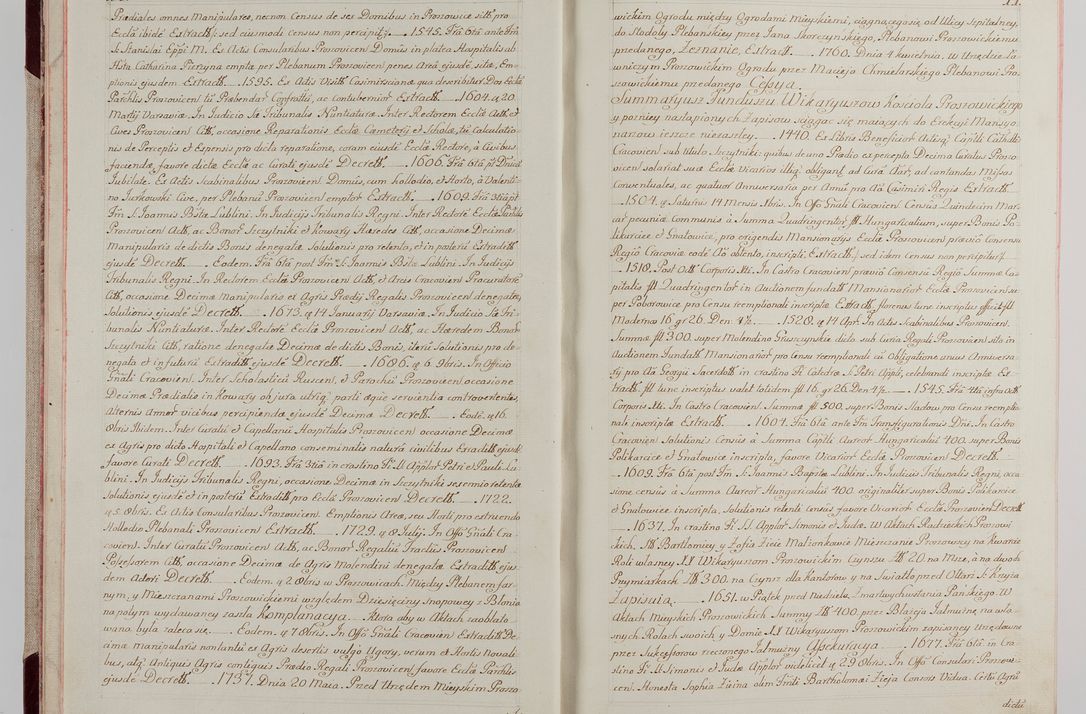 Prædiales omnes Manipulares, necnon Census de 1es Domibus in Proszowice sitt pro
Ecclâ ibidē Extractt: sed eiusmodi census non percipitz. 1545. Frâ 6tâ ante Fm̄
S. Stanislai Eppi M. Ex Actis Consularibus Proszovicen Domūs in platea Hospitalis ab
Hstâ Catharina Pierzyna emptæ per Plebanum Proszovicen penes Areā ejusdē sitæ, Em-
ptionis ejusdem Extractt. 1595. Ex Actis Visitt Casimirscianæ qua describitur Dos Ecclæ
Parchlis Proszovicen tū Præbendar Confrattū, ac contubernior Extractt. 1604. a 20
Martij Varsaviæ. In Judicio Sæ Tribunalis Nuntiaturæ. Inter Rectorem Ecclæ Actt. et
Cives Proszovicen Citt. occasione Reparationis Ecclæ Cæmeterij et Scholæ, tū Calculatio-
nis de Perceptis et Expensis pro dicta reparatione, coram ejusdē Ecclæ Rectore, a Civibus
faciendæ, favore dictæ Ecclæ ac Curati ejusdē Decrett. 1606. Frâ 6tâ pt Dnicā
Jubilate. Ex Actis Scabinalibus Proszovicen Domūs, cum hollodio, et Horto, a Valenti-
no Jurkowski Cive, per Plebanū Proszovicen emptor Extractt. 1609. Frâ 3tiâ pt
Fm̄ S. Joannis Bstæ Lublini. In Judicijs Tribunalis Regni. Inter Rectorē Ecclæ Parchlis
Proszovicen Actt, ac Bonor Szczytniki et Kowary Hæredes Citt. occasione Decimæ
Manipularis de dictis Bonis denegatæ Solutionis pro retento, et in posterū Extraditt
ejusdē Decrett. Eodem. Frâ 6tâ post Fm̄ S. Joannis Bstæ Lublini. In Judicijs
Tribunalis Regni. In Rectorem Ecclæ Proszovicen Actt, et Arcis Cracovien Procuratorē
Citt, occasione Decimæ Manipularis ex Agris Prædij Regalis Proszovicen denegatæ,
Solutionis ejusdē Decrett. 1673. a 14 Januarij Varsaviæ. In Judicio Sæ Tri-
bunalis Nuntiaturæ. Inter Rectorē Ecclæ Proszovicen Actt, ac Hæredem Bonor
Szczytniki Citt, ratione denegatæ Decimæ de dictis Bonis, iterū Solutionis pro de-
negata et in futurū Extraditt ejusdē Decrett. 1686. a 6. 9bris. In Officio
Gnāli Cracovien. Inter Scholasticū Ruscen. et Parochū Proszovicen occasione
Decimæ Prædialis in Kowary ob jura utriqz parti æque servientia controvertentes,
Alternis Annor vicibus percipiendæ ejusdē Decimæ Decrett. Eodē. a 16.
8bris Ibidem. Inter Curatū et Capellanū Hospitalis Proszovicen occasione Decimæ
ex Agris pro dicto Hospitali et Capellano conseminalis naturâ civilibus Extraditt ejusdē
favore Curati Decrett. 1693. Frâ 3tiâ in crastino Fi SS. Applor Petri et Pauli Lu-
blini. In Judicijs Tribunalis Regni, occasione Decimæ in Szczytniki sesremio retentæ
Solutionis ejusdē et in posterū Extraditt pro Ecclâ Proszovicen Decrett. 1722.
a 5. 8bris. Ex Actis Consularibus Proszovicen. Emptionis Areæ, seu Horti pro extruendo
Hollodio Plebanali Proszovicen Extractt. 1729. a 8 Julij. In Offō Gnāli Cra-
covien. Inter Curatū Proszovicen Actt, ac Bonor Regaliū Tractūs Proszovicen
Possessorem Citt, occasione Decimæ de Agris Molendini denegatæ Extraditt ejus-
dem Actori Decrett. Eodem. a 2 8bris w Proszowicach. Między Plebanem far-
nym, y Mieszczanami Proszowickiemi względem Dziesięciny Snopowey z Błonia
na polym wydawaney zaszła Komplanacya. Ktora aby w Aktach zaoblato-
wana była zaleca się. Eodem. a 7 8bris. In Offō Gnāli Cracovien Extraditt De-
cimæ Manipularis non tantū ex Agris desertis vulgo Ugory, verum et Hortis Novali-
bus, atqz Antiquis Agris contiguis Prædio Regali Proszovicen favore Ecclæ Parchlis
ejusdē Decrett. 1737. Dnia 20 Maia. Przed Urzędem Mieyskim Proszo-
wickim Ogrodu między Ogrodami Mieyskiemi, ciągnącego się od Ulicy Szpitalney,
do Stodoły Plebańskiey przez Jana Skorczynskiego, Plebanowi Proszowickiemu
przedanego, Zeznanie, Extractt. 1760. Dnia 4 kwietnia. w Urzędzie Ła-
wniczym Proszowickim Ogrodu przez Macieja Chmielarskiego Plebanowi Pro-
szowickiemu przedanego Cessya.
Summaryusz Funduszu Wikaryuszow Kościoła Proszowickiego
y pozniey nastąpionych Zapisow ściągac się maiących do Erekcyi Mansyo-
narzow ieszcze niezaszłey. 1440. Ex Libro Beneficior Antiqz Capitli Cathdlis
Cracovien sub titulo Szczytniki: quibus de uno Prædio ex percepta Decima Curatus Proszo-
vicen solariat suæ Ecclæ Vicarios illiqz obligant. ad Curâ Aīar, ad cantandas Missas
Conventuales, ac quatuor Anniversaria per Annū pro Aīa Casimiri Regis Extractt.
1504. a Saturnis 14 Mensis 9bris. In Offō Gnāli Cracovien Censūs Quindecim Mar-
car pecuniæ Communis a Summa Quadringentor fl. Hungaricalium, super Bonis Po-
likarcice et Gnatowice, pro erigendis Mansionarijs Ecclæ Proszovicen prævio Consensu
Regio Cracoviæ eodē Ao obtento, inscripti. Extractt. sed idem census non percipitur.
1518. Post Octt Corporis Xti. In Castro Cracovien prævio Consensū Regio Summæ Ca-
pitalis fl. Quadringentor in Auctionem fundatt Mansionarior Ecclæ Proszovicen su-
per Poborowice pro Censu reemptionali inscriptæ Extractt, florenus tunc inscriptus efficit fl.
Modernos 16. gr 26. Den. 4½. 1528. a 14 Apr. In Actis Scabinalibus Proszovicen.
Summæ fl. 300. super Molendino Gruszczynskie dicto sub Curia Regali Proszovicen sito in
Auctionem Fundatt Mansionarior pro Censu reemptionali cū Obligatione unius Anniversa-
rij pro Aīa Georgij Sacerdott in crastino Fi Catedræ S. Petri Appli, celebrandi inscriptæ Ex-
tractt. fl. tunc inscriptus valet totidem fl. 16. gr 26. Den 4½. 1545. Frâ 4tâ infra Octt
Corporis Xti. In Castro Cracovien. Summæ fl. 500. super Bonis Sladow pro Censu reemptio-
nali inscriptæ Extractt. 1604. Frâ 6tâ ante Fm̄ Transfigurationis Dni. In Castro
Cracovien Solutionis Censūs a Summa Capitli Aureor Hungaricaliū 400. super Bonis
Polikarcice et Gnatowice inscripta, favore Vicarior Ecclæ Proszovicen Decrett.
1609. Frâ 6tâ post Fm̄ S. Joannis Baptæ Lublini. In Judicijs Tribunalis Regni, occa-
sione censūs a Summa Aureor Hungaricaliū 400. originaliter super Bonis Polikarcice
et Gnatowice inscripta, Solutionis retenti censūs favore Vicarior Ecclæ Proszovicen Decrett
1637. In crastino Fi SS. Applor Simonis et Judæ. W Aktach Radzieckich Proszowi-
ckich. Stt Bartłomiey y Zofia Zieie Małżonkowie Mieszczanie Proszowscy na Kwarcie
Roli własney XX. Wikaryuszom Proszowickim Czynszu fl. 20. na Msze, a na dwoch
Przymiarkach fl. 300. na Czynsz dla Kantorow y na Swiatło przed Ołtarz S. Krzyża
Zapisuią. 1651. w Piątek przed Niedzielą Zmartwychwstania Pańskiego. W
Aktach Mieyskich Proszowickich Summy fl. 400. przez Błażeja Jałmużnę na wła-
snych Rolach swoich y Domie XX. Wikaryuszom Proszowickim zapisaney Urzędowne
przez Sukcessorow rzeczonego Jałmużny Assekuracya. 1677. Frâ 6tâ in Cra-
stino Fi SS. Simonis et Judæ Applor videlicet a 29 8bris. In Offō Consulari Proszovi-
cen. Honesta Sophia Zieina olim Fmti Bartholomæi Zieja Consors Vidua. Certū Agrū
dictū